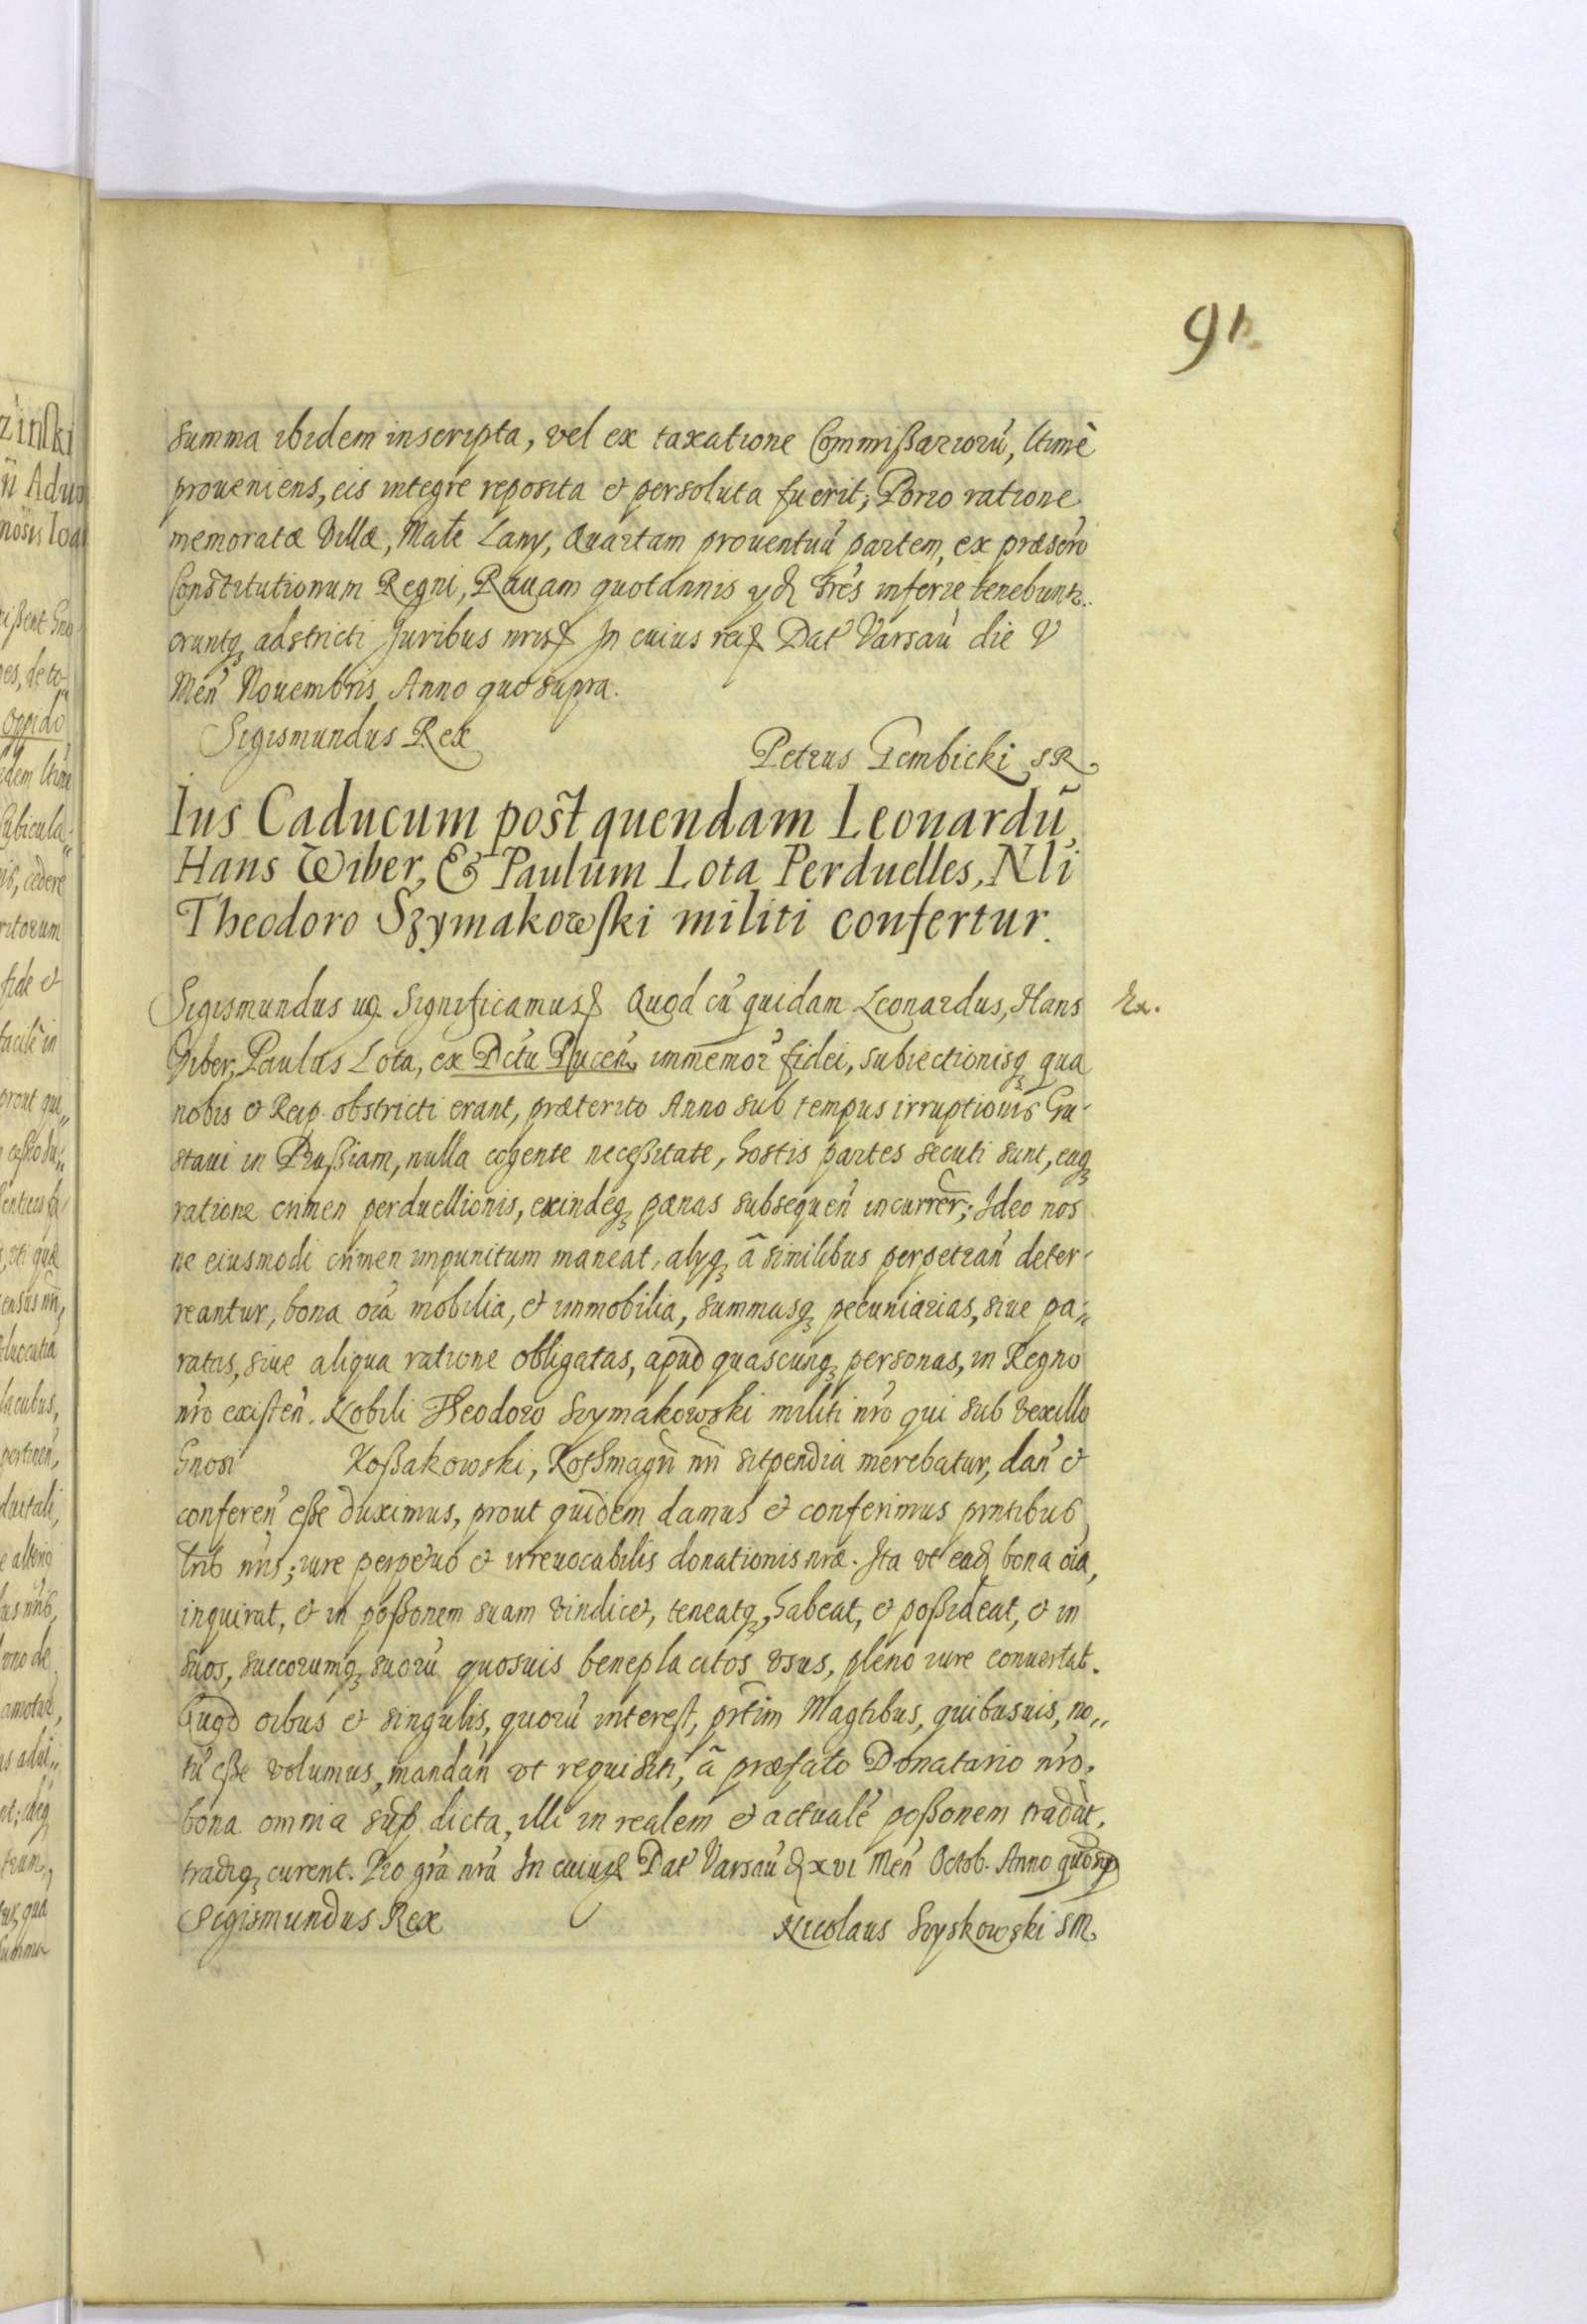 91.
summa ibidem inscripta, vel ex taxatione Commißariorũ, ltimè
proueniens, eis integre reposita et persoluta fuerit; Porro ratione
memoratæ Villæ, Małe Lany, Quartam prouentuũ partem, ex præscro
Constitutionum Regni, Rauam quotannis ijd Frẽs inferre tenebuntr.
eruntq adstricti Juribus nris In cuius rei Dat Varsau die V
Men Nouembris Anno quo supra.
Sigismundus Rex
Petrus Gembicki SR
Ius Caducum post quendam Leonardũ,
Hans Wiber, & Paulum Lota Perduelles, Nli
Theodoro Szymakowski militi confertur.
Sigismundus ug. Significamus Quod cũ quidam Leonardus, Hans
Giber, Paulus Lota, ex Dctu Pucen, immemor fidei, subiectionisq qua
nobis et Reip. obstricti erant, præterito Anno sub tempus irruptionis Gu-
staui in Prußiam, nulla cogente neceßitate, hostis partes secuti sunt, eaq
ratione crimen perduellionis, exindeq pænas subsequen incurrer; Ideo nos
ne eiusmodi crimen impunitum maneat, alijq ã similibus perpetran deter-
reantur, bona oia mobilia, et immobilia, summasq pecuniarias, siue pa-
ratas, siue aliqua ratione obligatas, apud quascunq personas, in Regno
nro existen. Nobili Theodoro Szymakowski militi nro qui sub vexillo
Gnosi Koßakowski, Rothmagri nri stipendia merebatur, dan et
conferen eße duximus, prout quidem damus et conferimus pntibus
lris nris; iure perpetuo et irreuocabilis donationis nræ. Ita vt ead bona oia,
inquirat, et in poßonem suam vindicet, teneatq, habeat, et poßideat, et in
suos, succorumq suorũ quosuis beneplacitos vsus, pleno iure conuertat.
Quod oibus et singulis, quorũ interest, prtim Magtibus, quibusuis, no-
tũ eße volumus, mandan vt requisiti, ã præfato Donatario nro,
bona omnia sup dicta, illi in realem et actualẽ poßonem tradãt,
tradiq curent. Pro gra nra In cuius Dat Varsau d xvi Men Octob. Anno quo sup
Sigismundus Rex
Nicolaus Szyskowski SM.
Ex.